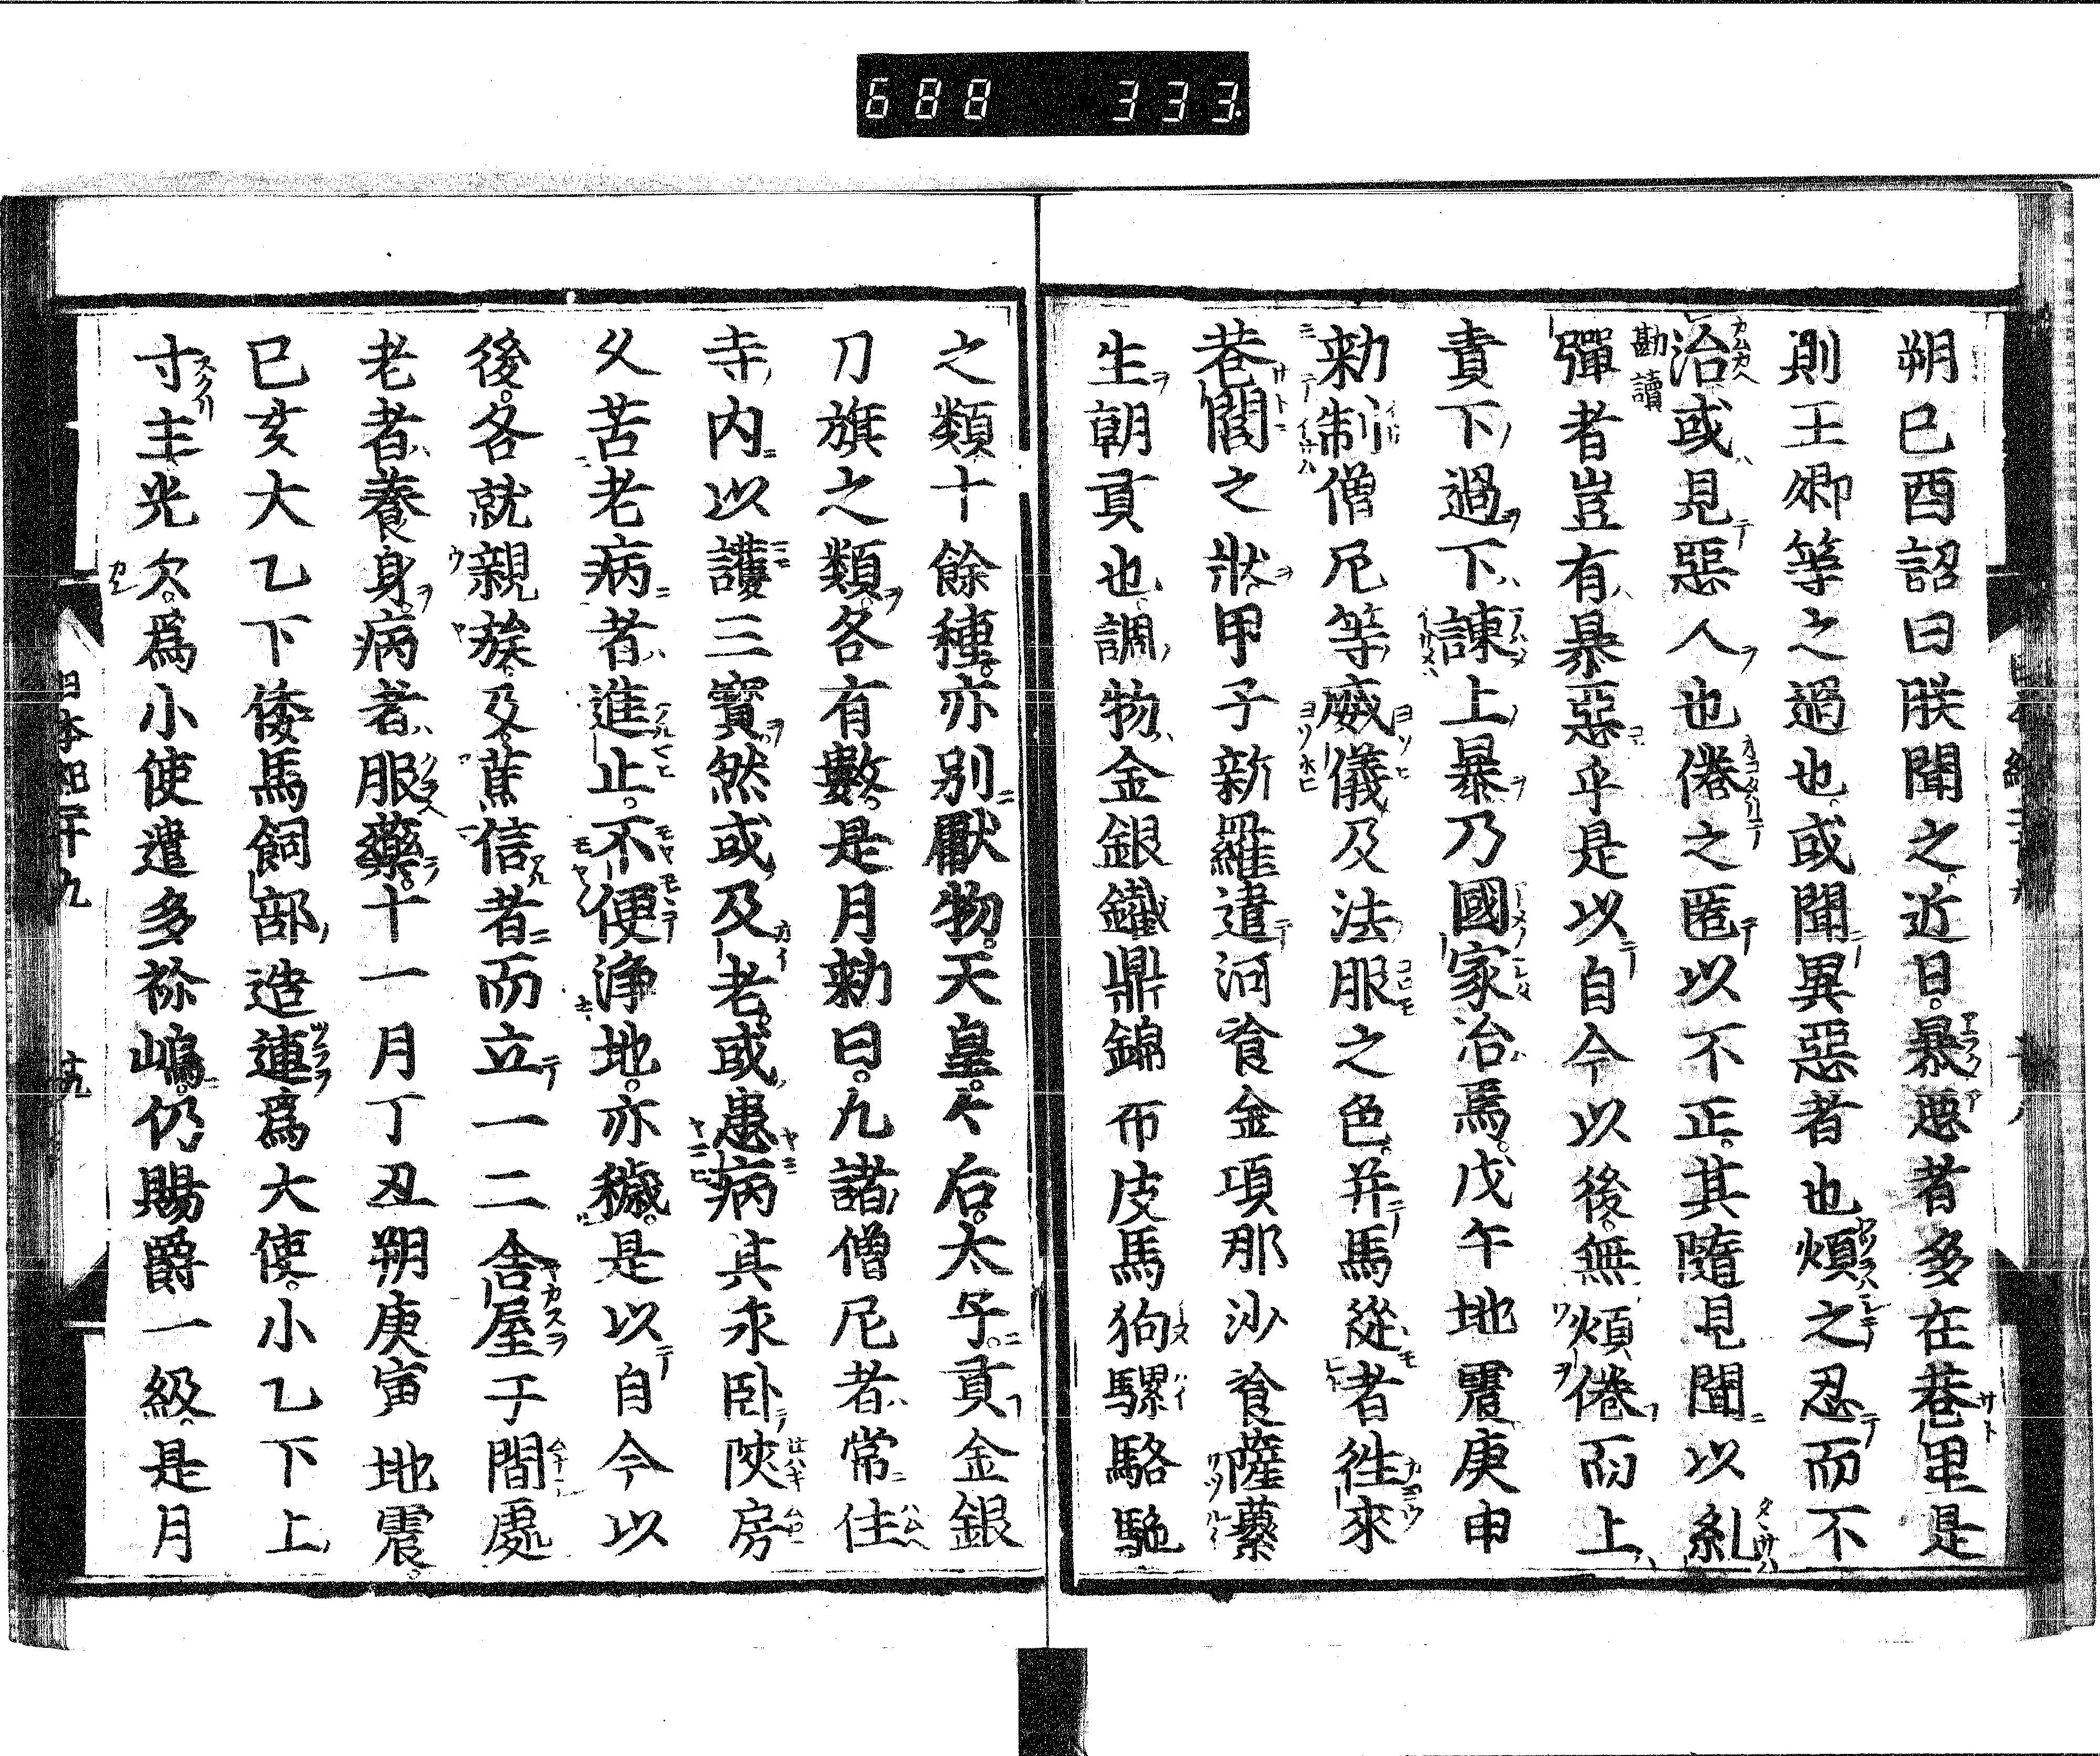 688 333
朔已酉詔曰朕聞之近日暴惡者多在巷里是
則王卿等之過也或聞異惡者也煩之忍而不
治或見惡人也倦之匿以不正其隨見聞以糺
彈者豈有暴惡乎是以自今以後無煩倦而上
責下過下諫上暴乃國家治焉戊午地震庚申
勑制僧尼等威儀及法服之色并馬從者徃來
巷閭之狀甲子新羅遣河飡金項那沙飡薩虆
生朝貢也調物金銀鐵鼎錦布皮馬狗騾駱駞
之類十餘種亦別獻物天皇々后太子貢金銀
刀旗之類各有數是月勑曰凡諸僧尼者常住
寺内以護三寶然或及老或患病其永卧陜房
久苦老病者進止不便浄地亦穢是以自今以
後各就親族及蕉信者而立一二舎屋于間處
老者養身病者服藥十一月丁丑朔庚寅地震
已亥大乙下倭馬飼部造連爲大使小乙下上
寸主光欠爲小使遣多祢嶋仍賜爵一級是月
日本紀二十九 十九